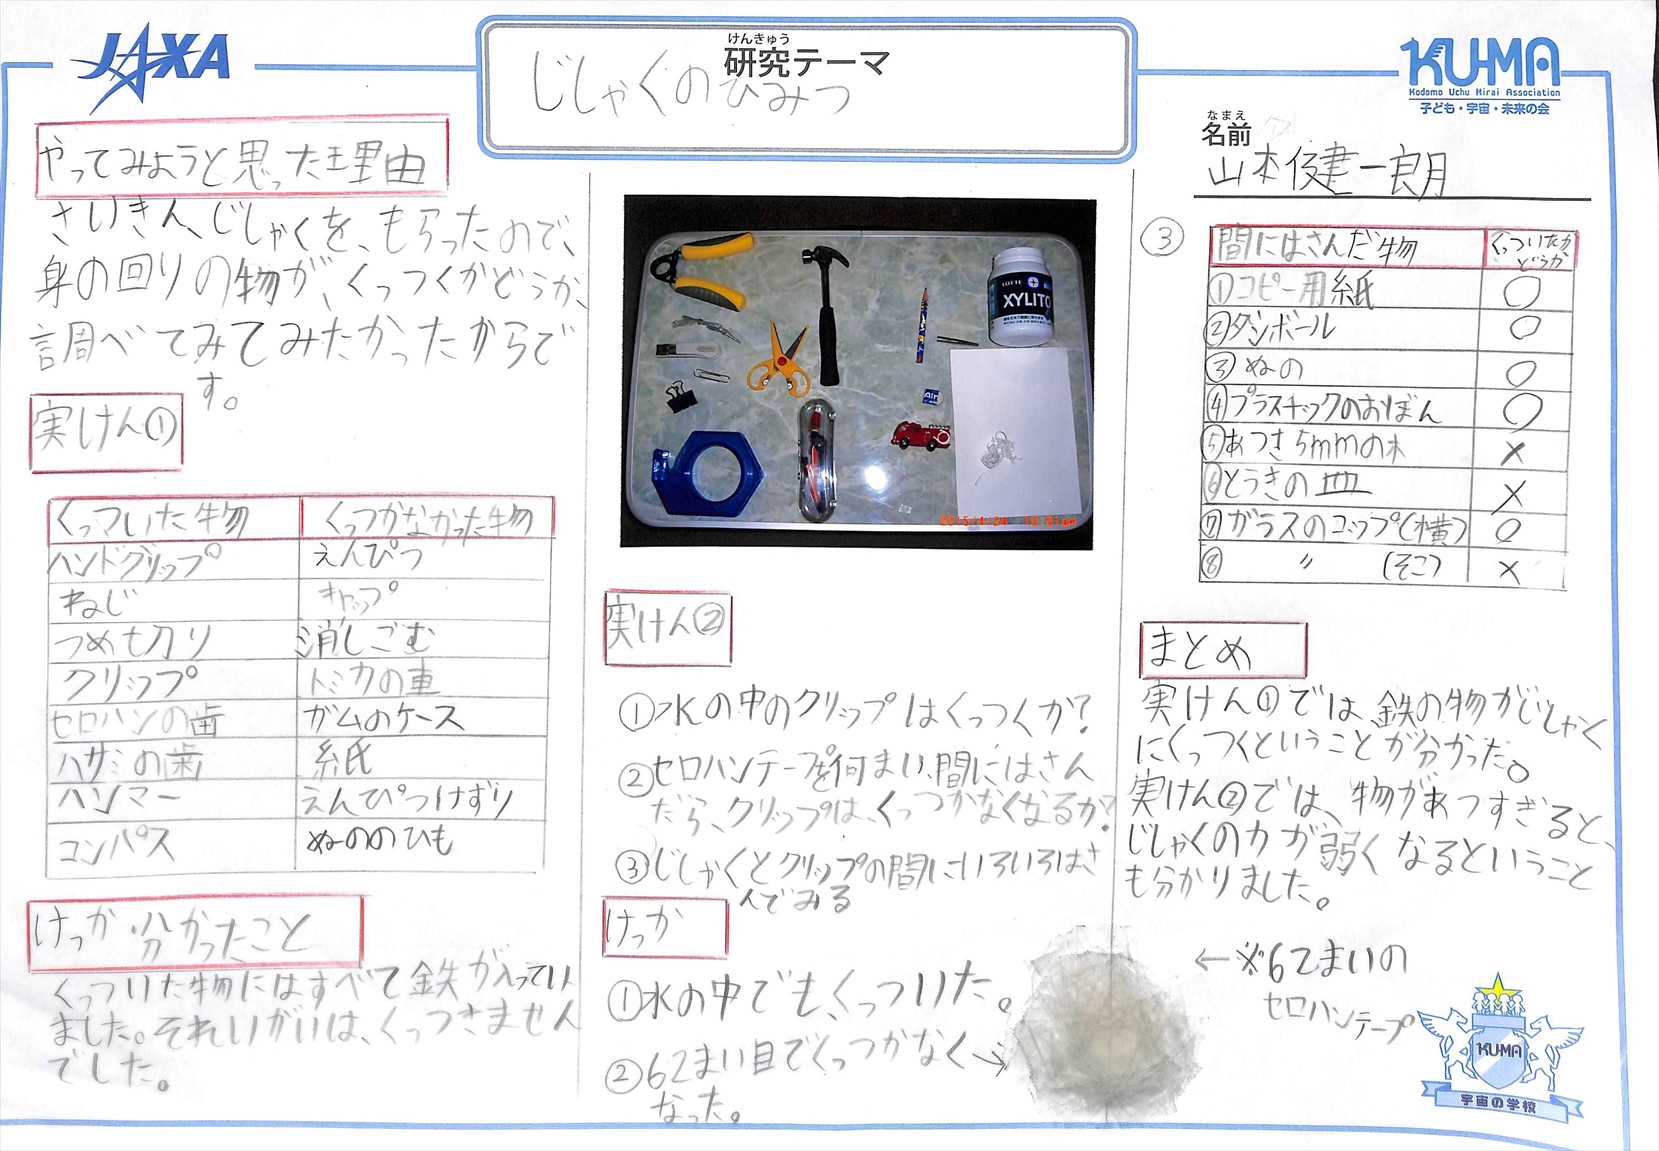 JAXA
けんきゅう
研究テーマ
じしゃくのひみつ
KU-MA
Kodomo Uchu Mirai Association
子ども・宇宙・未来の会
なまえ
名前
山本俊建一良月
やってみようと思った理由
さいきん、じしゃくを、もらったので、
身の回りの物が、くっつくかどうか、
調べてみてみたかったからで
す。
実けん①
くっついた物 くっつかなかった物
ハンドグリップ えんぴつ
ねじ キャップ
つめ切り 消しごむ
クリップ トミカの車
セロハンの歯 ガムのケース
ハサミの歯 紙
ハンマー えんぴつけずり
コンパス ぬののひも
けっか・分かったこと
くっついた物にはすべて鉄が入ってい
ました。それいがいは、くっつきません
でした。
LOTTE
XYLITO
Air
2015/4/24
実けん②
①水の中のクリップはくっつくか?
②セロハンテープを何まい、間にはさん
だら、クリップは、くっつかなくなるか?
③じしゃくとクリップの間にいろいろはさ
んでみる
けっか
①水の中でも、くっついた。
②62まい目でくっつかなく→
なった。
③
間にはさんだ物 くっついたか
どうか
①コピー用紙 ○
②ダンボール ○
③ぬの ○
④プラスチックのおぼん ○
⑤あつさ5mmの木 ×
⑥とうきの皿 ×
⑦ガラスのコップ(横) ○
⑧ 〃 (そこ) ×
まとめ
実けん①では、鉄の物がじしゃく
にくっつくということが分かった。
実けん②では、物があつすぎると、
じしゃくの力が弱くなるということ
も分かりました。
←※62まいの
セロハンテープ
KU-MA
宇宙の学校